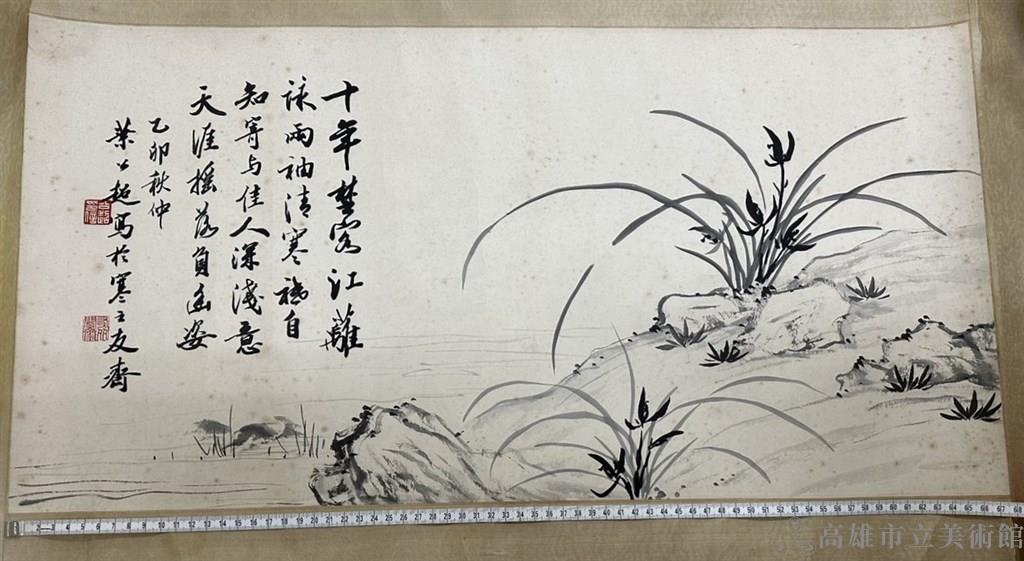 十年楚客江蘺
詠兩袖清寒祗自
知寄与佳人深淺意
天涯搖落負幽姿
乙卯秋仲
葉公超寫於寒之友齋
高雄市立美術館